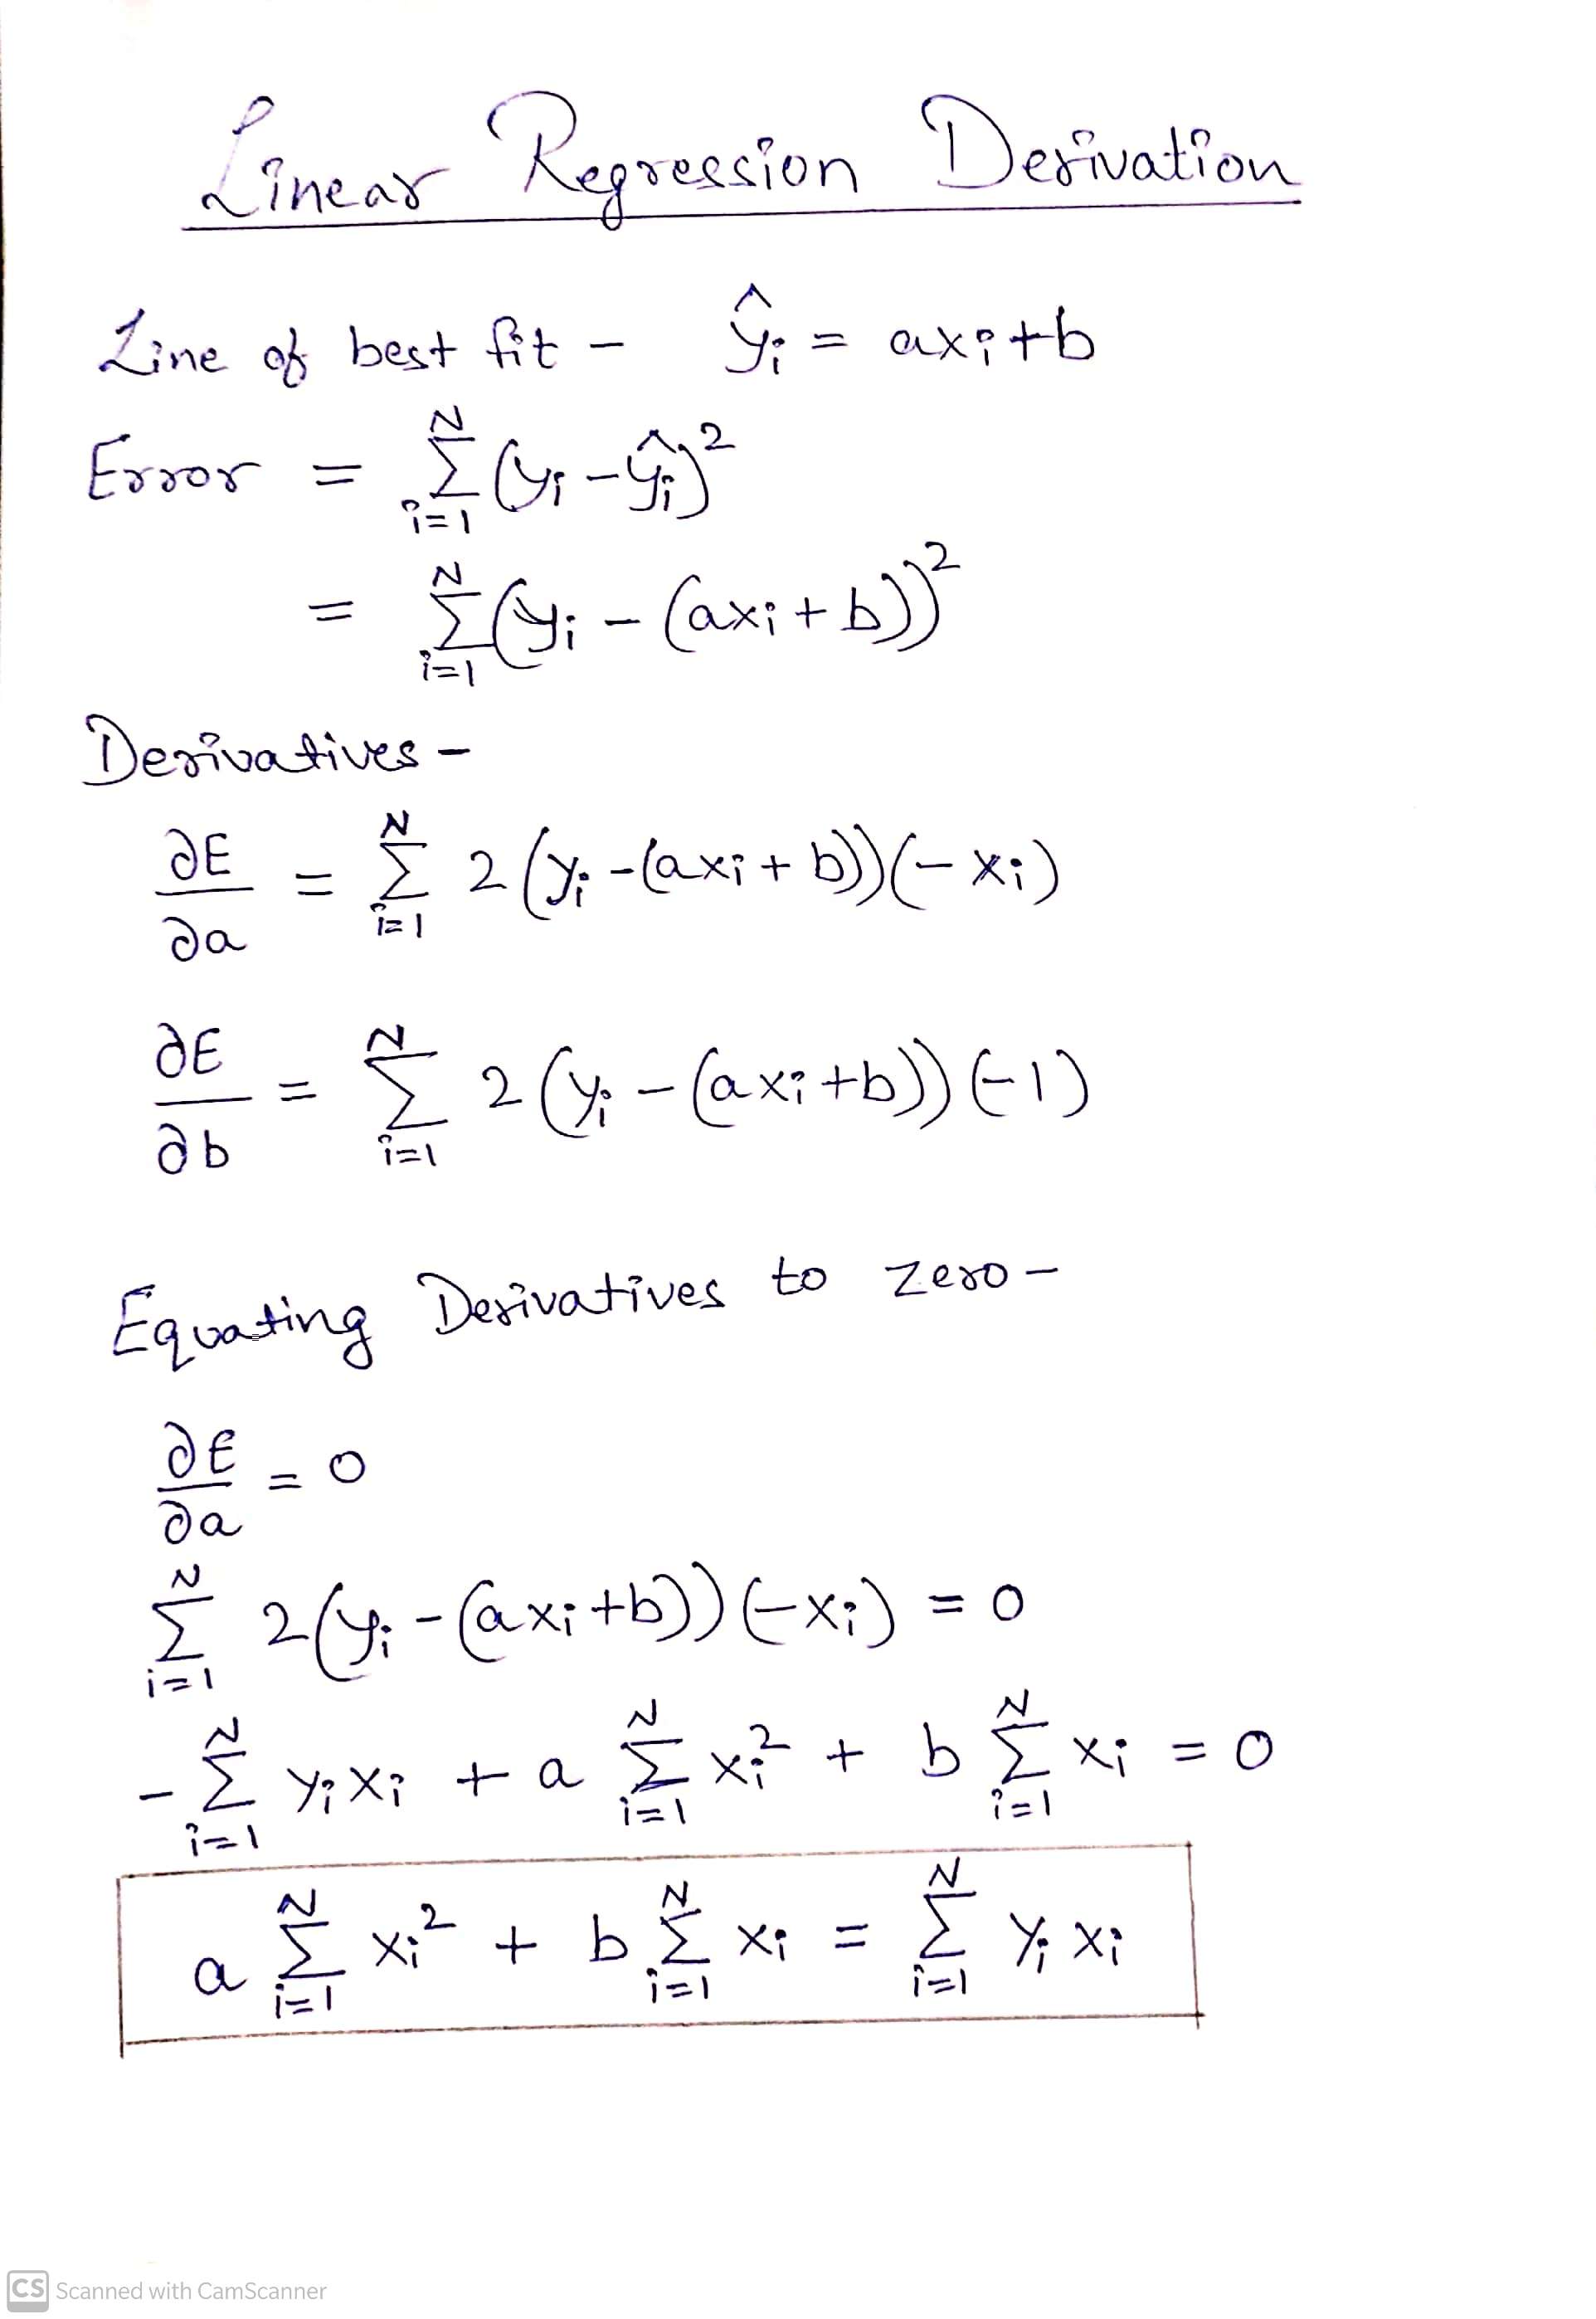 Linear Regression Derivation
Line of best fit - ŷᵢ = axᵢ+b
Error = Σᵢ₌₁ᴺ (yᵢ - ŷᵢ)²
= Σᵢ₌₁ᴺ (yᵢ - (axᵢ + b))²
Derivatives -
∂E/∂a = Σᵢ₌₁ᴺ 2 (yᵢ - (axᵢ + b))(-xᵢ)
∂E/∂b = Σᵢ₌₁ᴺ 2 (yᵢ - (axᵢ+b))(-1)
Equating Derivatives to zero -
∂E/∂a = 0
Σᵢ₌₁ᴺ 2(yᵢ - (axᵢ+b))(-xᵢ) = 0
- Σᵢ₌₁ᴺ yᵢxᵢ + a Σᵢ₌₁ᴺ xᵢ² + b Σᵢ₌₁ᴺ xᵢ = 0
a Σᵢ₌₁ᴺ xᵢ² + b Σᵢ₌₁ᴺ xᵢ = Σᵢ₌₁ᴺ yᵢxᵢ
CS Scanned with CamScanner